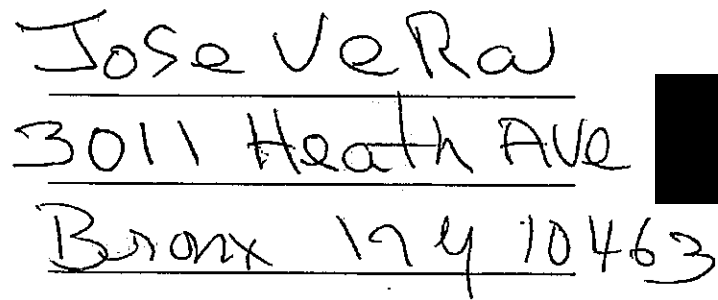 Jose Vera
3011 Heath Ave
Bronx ny 10463